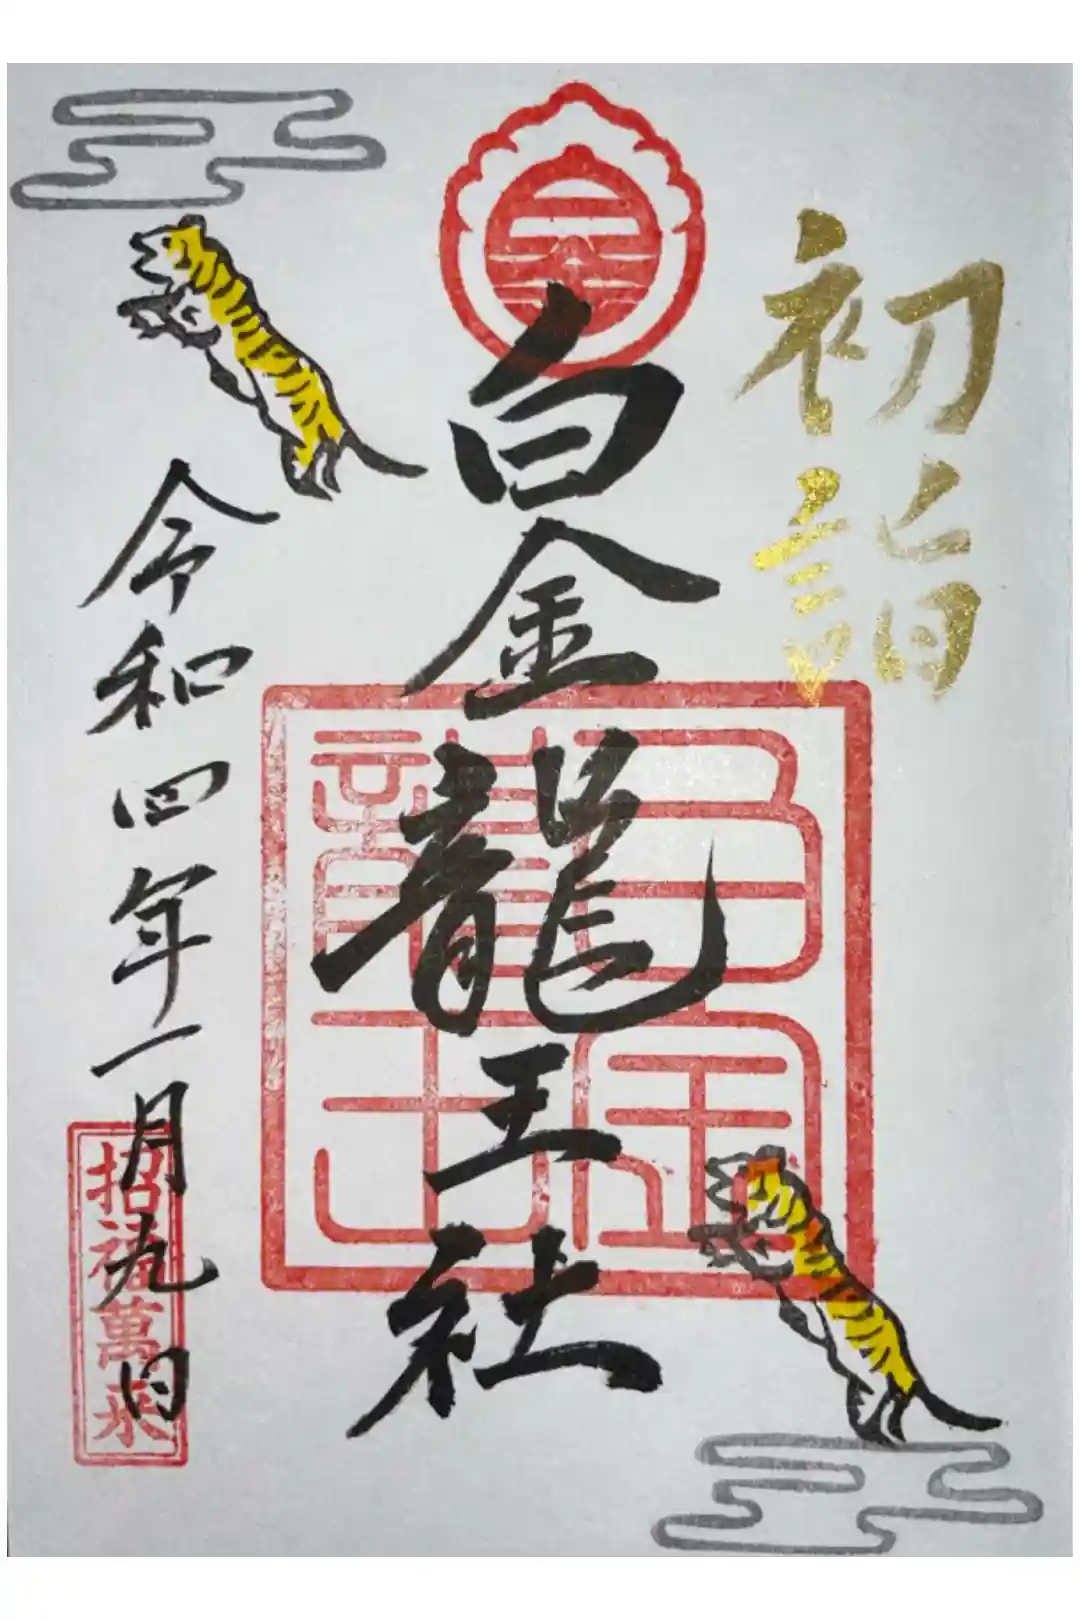 初詣
白金龍王社
白金龍王
令和四年一月九日
招福萬来